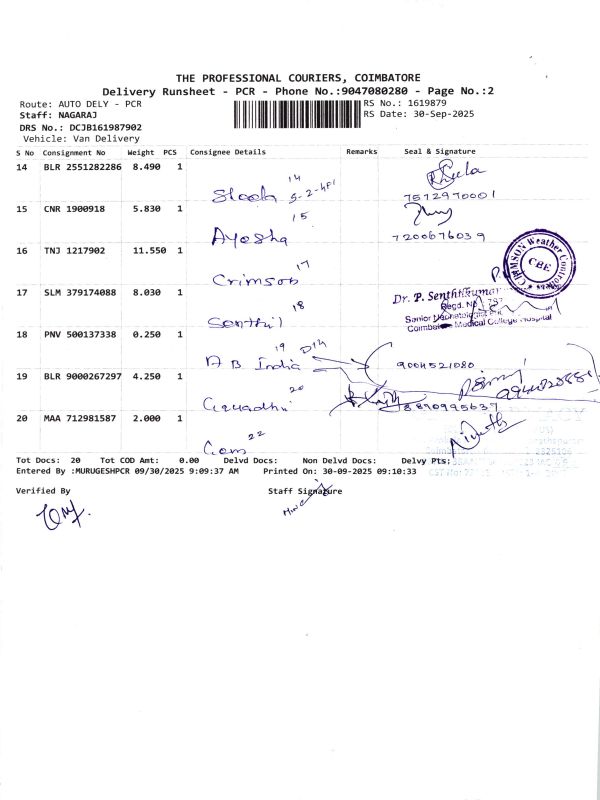 THE PROFESSIONAL COURIERS, COIMBATORE
Delivery Runsheet - PCR - Phone No.:9047080280 - Page No.:2
Route: AUTO DELY - PCR RS No.: 1619879
Staff: NAGARAJ RS Date: 30-Sep-2025
DRS No.: DCJB161987902
Vehicle: Van Delivery
S No Consignment No Weight PCS Consignee Details Remarks Seal & Signature
14 BLR 2551282286 8.490 1
14
7572970001
15 CNR 1900918 5.830 1
15
Ayesha
7200676039
16 TNJ 1217902 11.550 1
CRIMSON Weather Control
CBE
17
Crimson
17 SLM 379174088 8.030 1
Dr. P. Senthilkumar
Regd. No
18
Senthil
Senior
Coimbatore Medical College Hospital
18 PNV 500137338 0.250 1
19
A B India
9004521080
19 BLR 9000267297 4.250 1
20
8890995639
20 MAA 712981587 2.000 1
22
Tot Docs: 20 Tot COD Amt: 0.00 Delvd Docs: Non Delvd Docs: Delvy Pts:
Entered By :MURUGESHPCR 09/30/2025 9:09:37 AM Printed On: 30-09-2025 09:10:33
Verified By Staff Signature